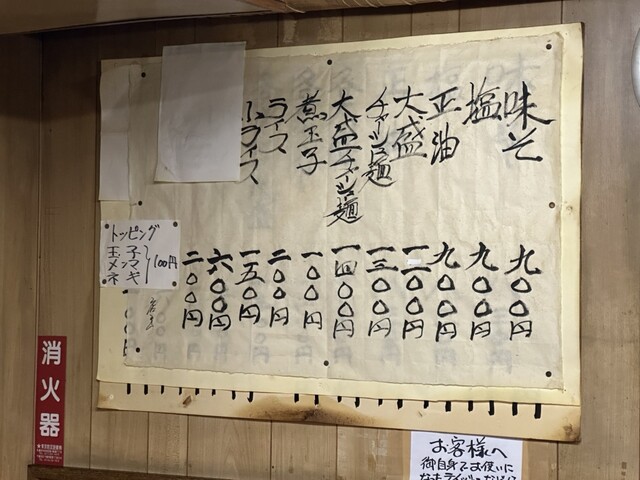 味そ 九〇〇円
塩 九〇〇円
正油 九〇〇円
大盛 一一〇〇円
チャーシュー麺 一三〇〇円
大盛チャーシュー麺 一四〇〇円
煮玉子 一〇〇円
ライス 二〇〇円
小ライス 一五〇円
六〇〇円
二〇〇円
トッピング
玉子
メンマ
ネギ
100円
消火器
お客様へ
御自身でお使いに